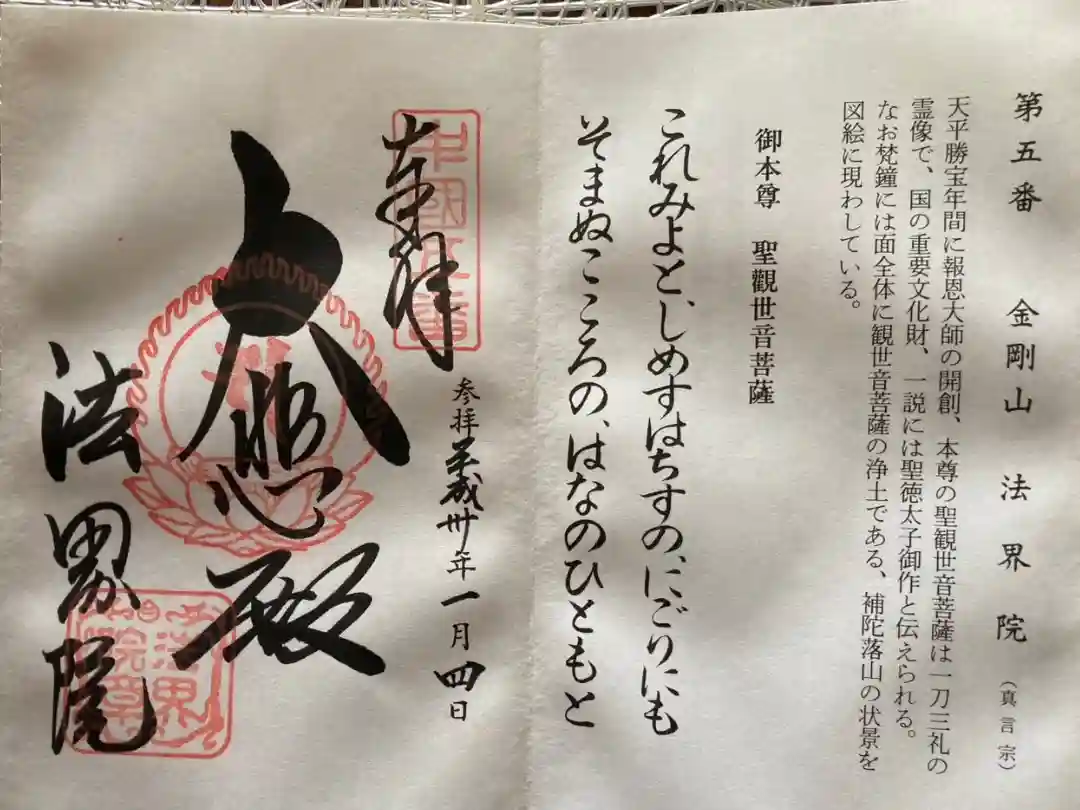 第五番 金剛山 法界院（真言宗）
天平勝宝年間に報恩大師の開創、本尊の聖観世音菩薩は一刀三礼の
霊像で、国の重要文化財、一説には聖徳太子御作と伝えられる。
なお梵鐘には面全体に観世音菩薩の浄土である、補陀落山の状景を
図絵に現わしている。
御本尊 聖觀世音菩薩
これみよと、しめすはちすの、にごりにも
そまぬこころの、はなのひともと
中國五番
奉拝
参拝平成卅年一月四日
大悲殿
法界院
法界院章